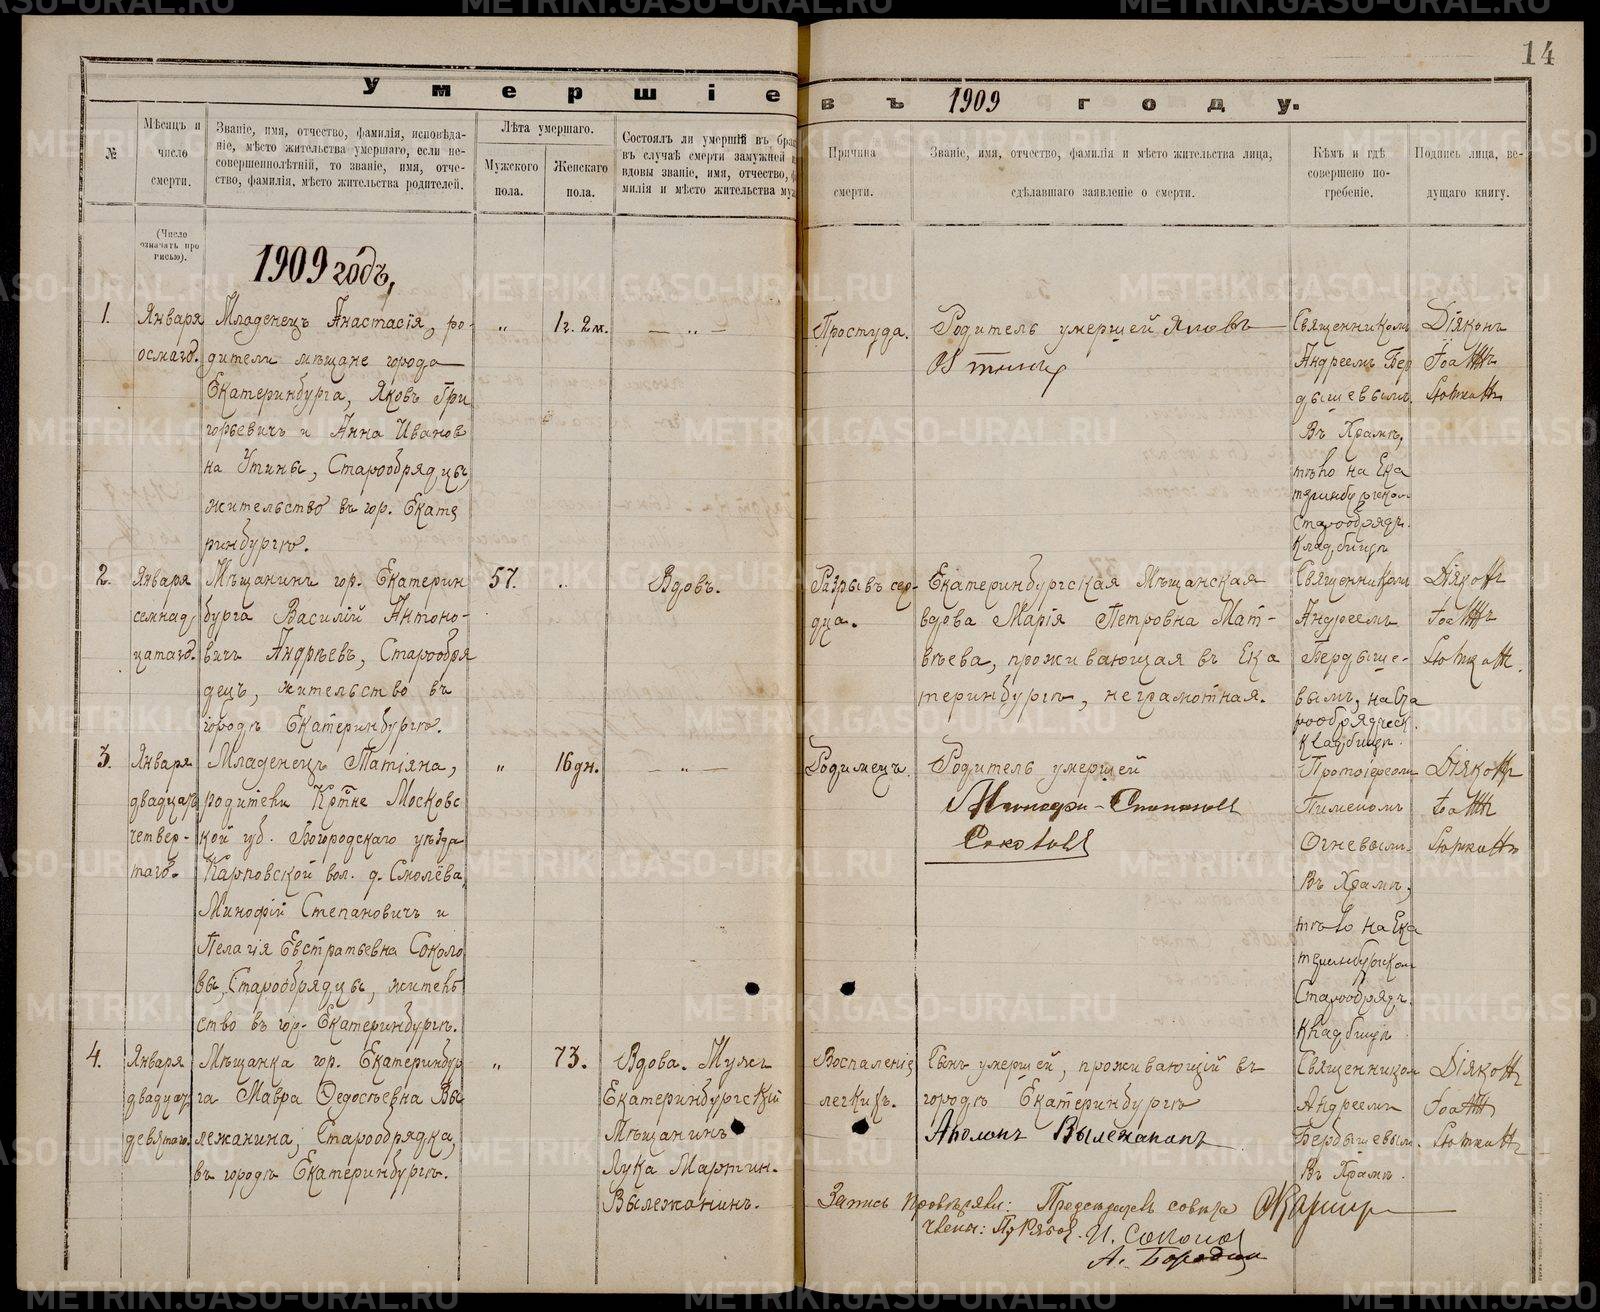 14
Умершіе въ 1909 году.
№
Мѣсяцъ и
число
смерти.
Званіе, имя, отчество, фамилія, исповѣда-
ніе, мѣсто жительства умершаго, если не-
совершеннолѣтній, то званіе, имя, отче-
ство, фамилія, мѣсто жительства родителей.
Лѣта умершаго.
Мужского
пола.
Женскаго
пола.
Состоялъ ли умершій въ бра
въ случаѣ смерти замужней
вдовы званіе, имя, отчество,
милія и мѣсто жительства му
Причина
смерти.
Званіе, имя, отчество, фамилія и мѣсто жительства лица,
сдѣлавшаго заявленіе о смерти.
Кѣмъ и гдѣ
совершено по-
гребеніе.
Подпись лица, ве-
дущаго книгу.
(Число
означать про
писью).
1909 годъ,
1.
Января
осмагѡ.
Младенецъ Анастасія, ро-
дители мѣщане города
Екатеринбурга, Яковъ Гри
горьевичъ и Анна Иванов
на Утины, Старообрядцы,
жительство въ гор. Екате
ринбургѣ.
„
1г. 2м.
— „ —
Простуда.
Родитель умершей Яковъ
Утинъ
Священникомъ
Андреемъ Бер
дышевымъ.
Въ Храмѣ,
тѣло на Ека
теринбургском
Старообрядч.
Кладбищѣ
Діяконъ
2.
Января
семнад
цатагѡ.
Мѣщанинъ гор. Екатерин
бурга Василій Антоно-
вичъ Андрѣевъ, Старообря
децъ, жительство въ
городѣ Екатеринбургѣ.
57.
„
Вдовъ.
Разрывъ сер-
дца.
Екатеринбургская Мѣщанская
вдова Марія Петровна Мат-
вѣева, проживающая въ Ека
теринбургѣ, неграмотная.
Священникомъ
Андреемъ
Бердыше-
вымъ, на Ста
рообрядческ.
Кладбищѣ.
Діяконъ
3.
Января
двадцать
четвер-
таго.
Младенецъ Татіяна,
родители Кртне Московс
кой губ. Богородскаго уѣзда
Карповской вол. д. Смолёва,
Минофій Степановичъ и
Пелагія Евстратьевна Соколо
вы, Старообрядцы, житель
ство въ гор. Екатеринбургѣ.
„
16 дн.
— „ —
Родимецъ.
Родитель умершей
Соколовъ
Протоіереомъ
Пименомъ
Огневымъ.
Въ Храмѣ,
тѣло на Ека
теринбурском
Старообрядч.
Кладбищѣ.
Діяконъ
4.
Января
двадцать
девятаго.
Мѣщанка гор. Екатеринбур
га Мавра Ѳедосѣевна Вы
лежанина, Старообрядка,
въ городѣ Екатеринбургѣ.
„
73.
Вдова. Мужъ
Екатеринбургскій
Мѣщанинъ
Лука Мартин.
Вылежанинъ.
Воспаленіе
легкихъ.
Сынъ умершей, проживающій въ
городѣ Екатеринбургѣ
Аполонъ Вылежанинъ
Священником
Андреемъ
Бердышевым.
Въ Храмѣ.
Діяконъ
Запись провѣряли: Предсѣдатель совѣта
Члены: И. Соколов
А. Бородин
METRIKI.GASO-URAL.RU